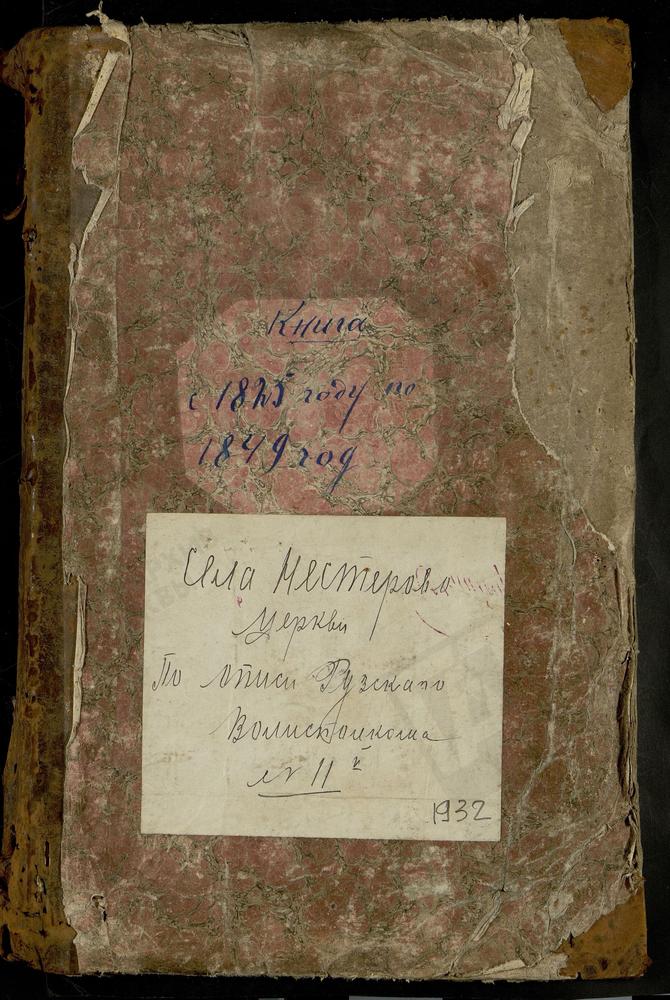 Книга
с 1825 году по
1849 год
Села Нестерова
Церкви
По описи Рузскаго
Волисполкома
№ 11й
1932